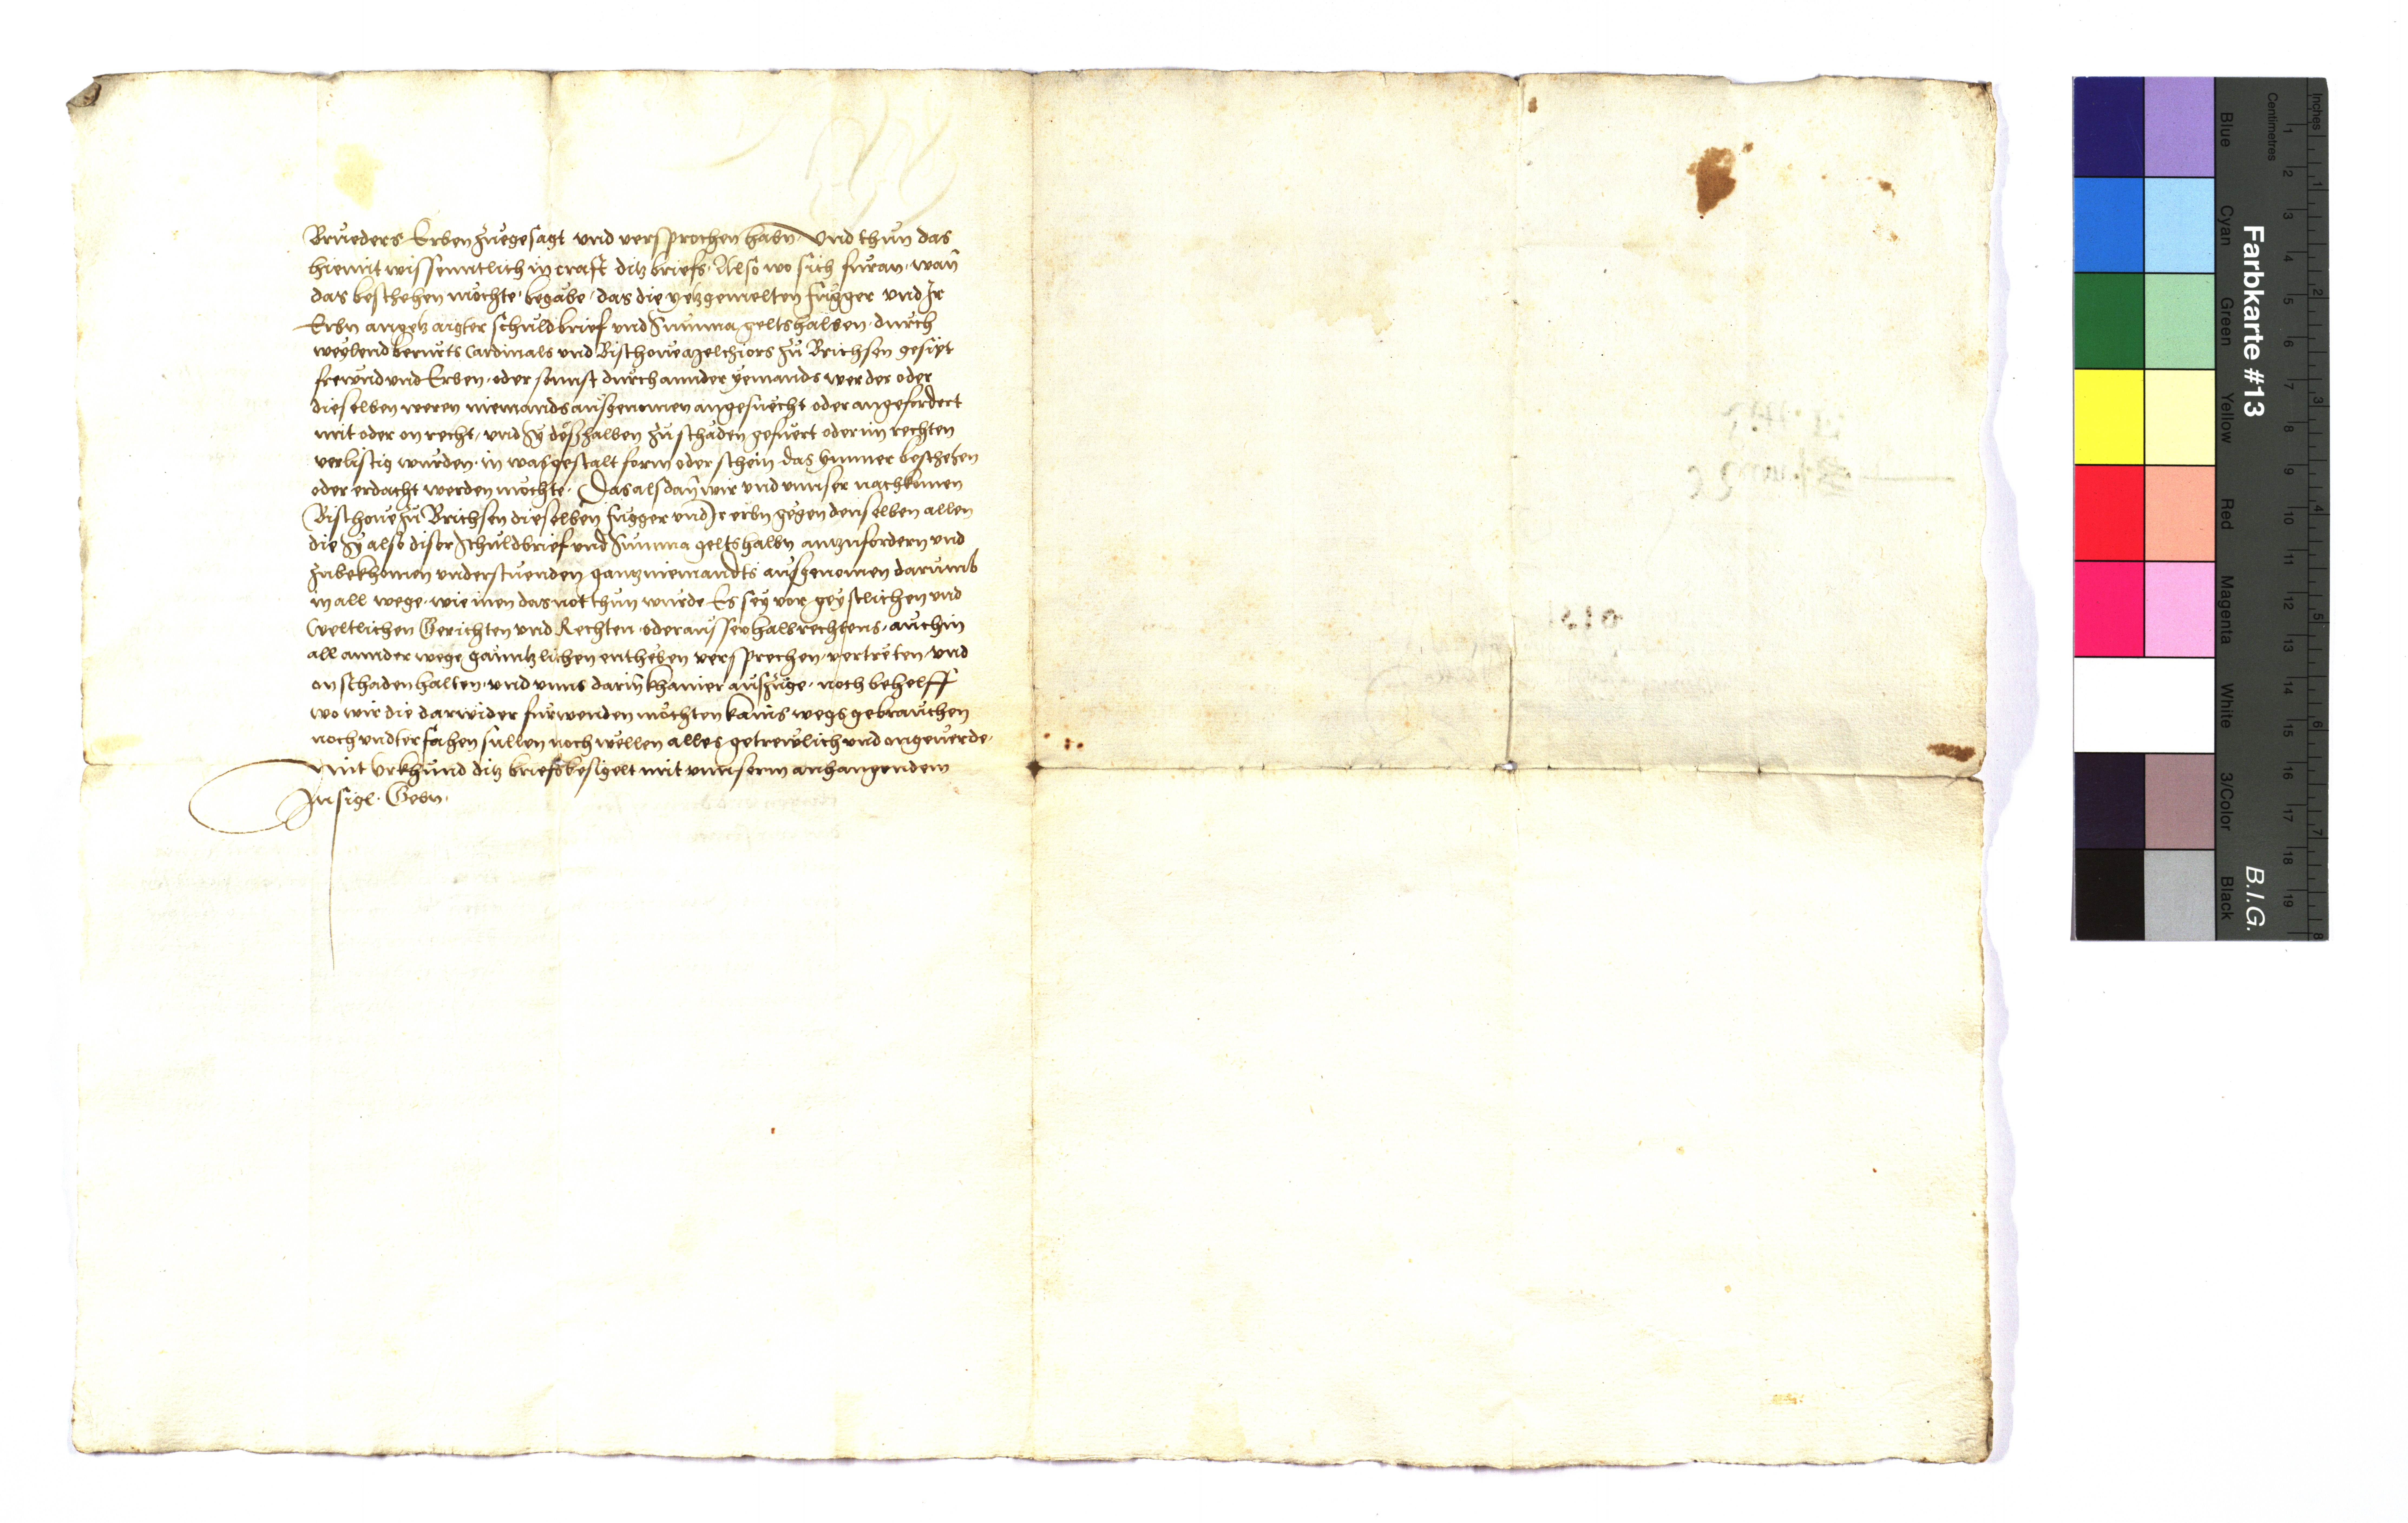 Brueders Erben zuegesagt vnd versprochen habn. Vnd thun das
hiemit wissenntlich in craft ditz briefs. Also wo sich furan. wan̄
das beschehen möchte. begäbe. das die yetzgemelten Fugger vnd Ir
Erbn angetzaigter schuldbrief vnd Summa geltshalben. durch
weylend berurts Cardinals vnd Bischoue Melchiors zu Brichsen gesipt
frewnd vnd Erben. oder sunst durch annder yemands wer der oder
dieselben weren niemands ausgenomen angesuecht oder angefordert
mit oder on recht, vnd Sy deßhalben zu schaden gefuert oder im rechten
verlistig wurden. in was gestalt form oder schein das ymmer beschehen
oder erdacht werden möchte. Das alsdan̄ wir vnd vnnser nachkomen
Bischoue zu Brichsen dieselben Fugger vnd Ir erbn gegen denselben allen
die Sy also diser schuldbrief vnd Summa geltshalbn antzufordern vnd
zubekhomen vnderstuenden gantz niemandts ausgenomen darumb
in all wege. wie inen das not thun wurde Es sey vor geystlichen vnd
Weltlichen Gerichten vnd Rechten. oder ausserhalb rechtens. auch in
all annder wege gänntzlichen entheben versprechen. vertreten. vnd
on schaden halten. vnd vnns darin̄ khainer auszüge. noch behelff
wo wir die darwider furwenden möchten kains wegs gebrauchen
noch vndterfahen sullen noch wellen alles getrewlich vnd ongeuerde.
Mit vrkhund ditz briefs besigelt mit vnnserm anhangendem
Insigl. Gebn.
Farbkarte #13
B.I.G.
Inches
Centimetres
Blue
Cyan
Green
Yellow
Red
Magenta
White
3/Color
Black
1 2 3 4 5 6 7 8 9 10 11 12 13 14 15 16 17 18 19
1 2 3 4 5 6 7 8